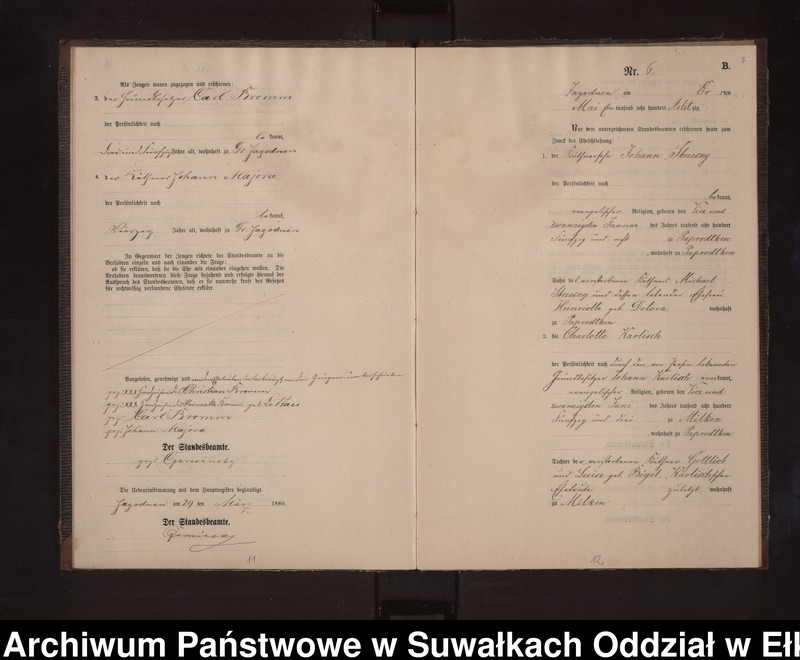 Als Zeugen waren zugezogen und erschienen:
3. der Grundbesitzer Carl Bromm
der Persönlichkeit nach
be kannt,
Jahre alt, wohnhaft zu Gr. Jagodnen
4. der Käthner Johann Majora
der Persönlichkeit nach
be kannt,
Vierzig Jahre alt, wohnhaft zu Gr. Jagodnen
In Gegenwart der Zeugen richtete der Standesbeamte an die
Verlobten einzeln und nach einander die Frage:
ob sie erklären, daß sie die Ehe mit einander eingehen wollen. Die
Verlobten beantworteten diese Frage bejahend und erfolgte hierauf der
Ausspruch des Standesbeamten, daß er sie nunmehr kraft des Gesetzes
für rechtmäßig verbundene Eheleute erkläre.
Vorgelesen, genehmigt und
gez: XXX Handzeichen des Christian Bromm
gez: XXX Handzeichen der Henriette Bromm geb.
gez: Carl Bromm
gez: Johann Majora
Der Standesbeamte.
gez:
Die Uebereinstimmung mit dem Hauptregister beglaubigt.
Jagodnen am 29 ten März 1880.
Der Standesbeamte.
11
Nr. 6.
B.
7
Jagodnen am ten
Mai Ein tausend acht hundert Achtzig
Vor dem unterzeichneten Standesbeamten erschienen heute zum
Zweck der Eheschließung:
1. der Johann
der Persönlichkeit nach
be kannt,
evangelischer Religion, geboren den Vier und
zwanzigsten Januar des Jahres tausend acht hundert
Fünfzig und acht zu Paprodtken
, wohnhaft zu Paprodtken
Sohn des verstorbenen Käthner Michael
und dessen lebender Ehefrau
Henriette geb. Delora, wohnhaft
zu Paprodtken
2. die Charlotte Karlisch
der Persönlichkeit nach durch den von Person bekannten
Grundbesitzer Johann Karlisch anerkannt,
evangelischer Religion, geboren den Vier und
zwanzigsten Juni des Jahres tausend acht hundert
Fünfzig und drei zu Milken
, wohnhaft zu Paprodtken
Tochter der verstorbenen Käthner Gottlieb
und Luise geb. Karlischschen
Eheleute zuletzt wohnhaft
zu Milken
12
Archiwum Państwowe w Suwałkach Oddział w Eł